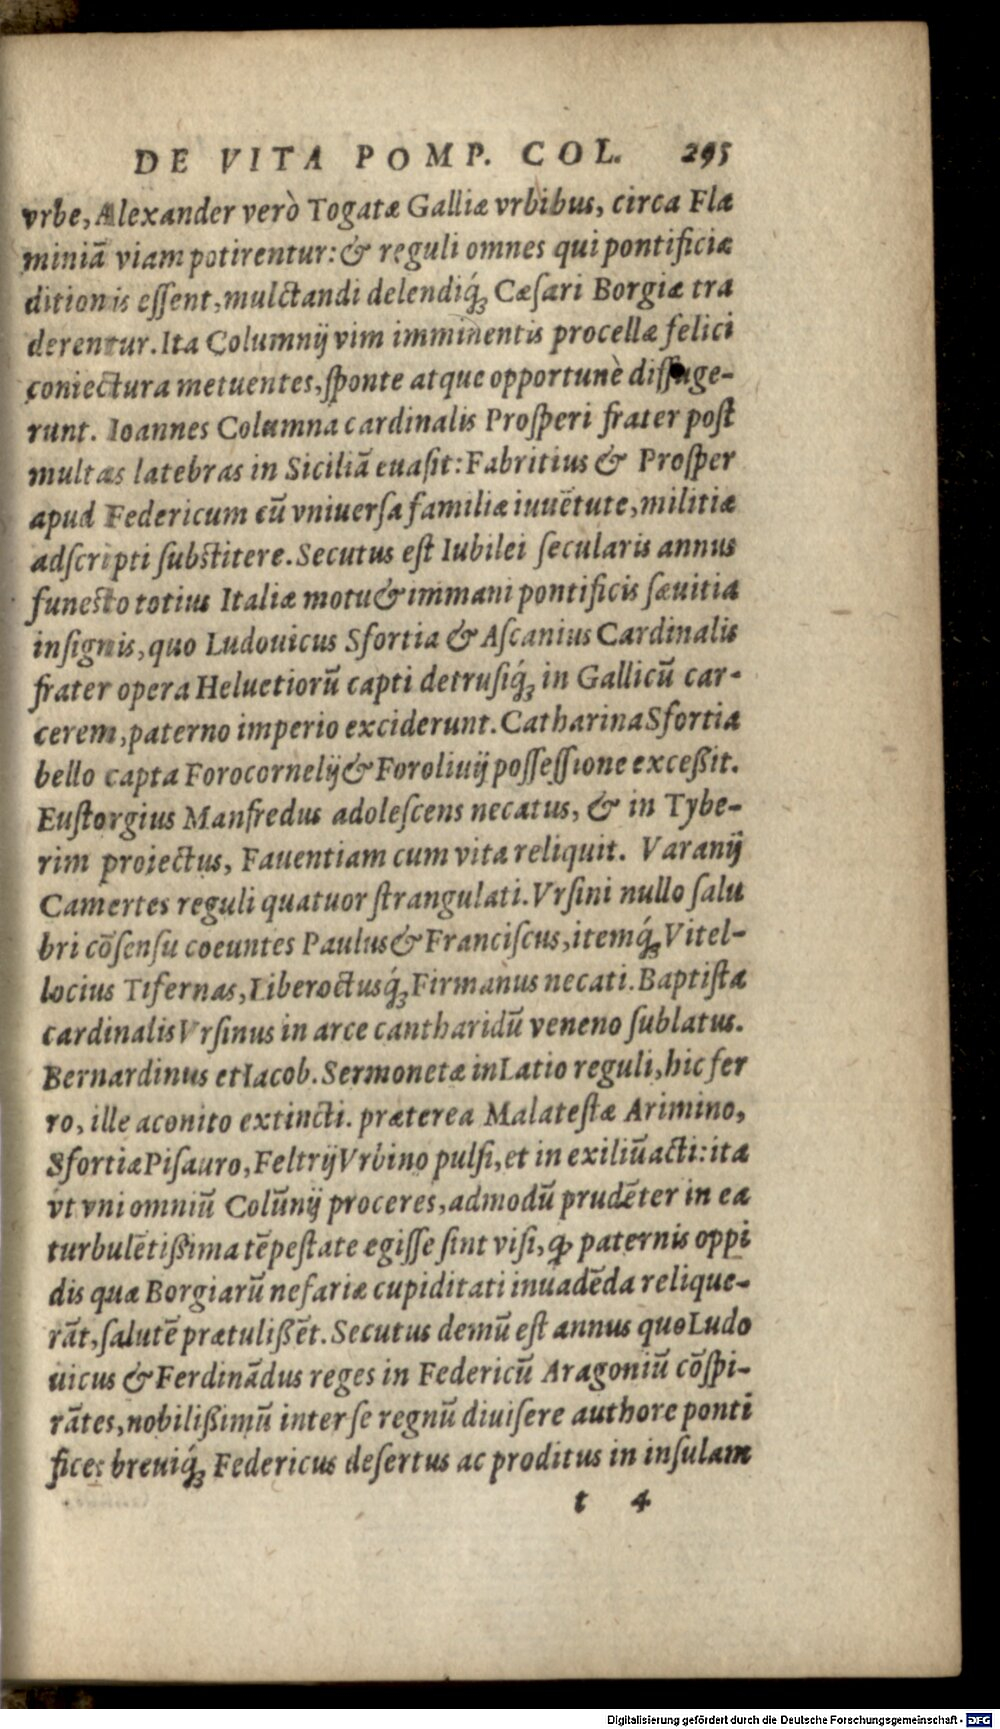 DE VITA POMP. COL. 295
vrbe, Alexander verò Togatæ Galliæ vrbibus, circa Fla
miniā viam potirentur: & reguli omnes qui pontificiæ
ditionis eſſent, mulctandi delendiq́ꝫ Cæſari Borgiæ tra
derentur. Ita Columnij vim imminentis procellæ felici
coniectura metuentes, ſponte atque opportunè diffuge-
runt. Ioannes Columna cardinalis Proſperi frater poſt
multas latebras in Siciliā euaſit: Fabritius & Proſper
apud Federicum cū vniuerſa familiæ iuuētute, militiæ
adſcripti ſubſtitere. Secutus eſt Iubilei ſecularis annus
funeſto totius Italiæ motu & immani pontificis ſæuitia
inſignis, quo Ludouicus Sfortia & Aſcanius Cardinalis
frater opera Heluetiorū capti detruſiq́ꝫ in Gallicū car-
cerem, paterno imperio exciderunt. Catharina Sfortia
bello capta Forocornelij & Foroliuij poſſeſſione exceßit.
Euſtorgius Manfredus adoleſcens necatus, & in Tybe-
rim proiectus, Fauentiam cum vita reliquit. Varanij
Camertes reguli quatuor ſtrangulati. Vrſini nullo ſalu
bri cōſenſu coeuntes Paulus & Franciſcus, itemq́ꝫ Vitel-
locius Tifernas, Liberoctusq́ꝫ Firmanus necati. Baptiſta
cardinalis Vrſinus in arce cantharidū veneno ſublatus.
Bernardinus et Iacob. Sermonetæ in Latio reguli, hic fer
ro, ille aconito extincti. præterea Malateſtæ Arimino,
Sfortiæ Piſauro, Feltrij Vrbino pulſi, et in exiliū acti: ita
vt vni omniū Colūnij proceres, admodū prudēter in ea
turbulētißima tēpeſtate egiſſe ſint viſi, ꝙ paternis oppi
dis quæ Borgiarū nefariæ cupiditati inuadēda relique-
rāt, ſalutē prætulißēt. Secutus demū eſt annus quo Ludo
uicus & Ferdinādus reges in Federicū Aragoniū cōſpi-
rātes, nobilißimū inter ſe regnū diuiſere authore ponti
fice: breuiq́ꝫ Federicus deſertus ac proditus in inſulam
t 4
Digitalisierung gefördert durch die Deutsche Forschungsgemeinschaft - DFG